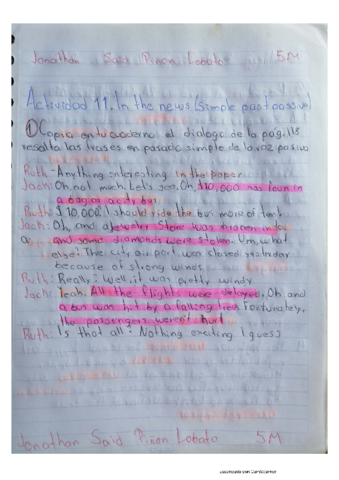 Jonathan Said Piñon Lobato 5M
Actividad 11. In the news (simple past passive)
① Copia en tu cuaderno el dialogo de la pag. 118
resalta las frases en pasado simple de la voz pasiva
Ruth: Anything interesting in the paper
Jack: Oh, not much. Let's see. Oh, $10,000 was foun in
a bag in a city bus
Ruth: $10,000! I should ride the bus more often
Jack: Oh, and a Jewelry Store was broken into
and some diamonds were stolen. Um, what
else? The city airport was closed yesterday
because of strong winds
Ruth: Really? Well, it was pretty windy
Jack: Yeah. All the flights were delayed. Oh and
a bus was hit by a falling tree. Fortunately,
the passengers weren't hurt
Ruth: Is that all? Nothing exciting I guess
Jonathan Said Piñon Lobato 5M